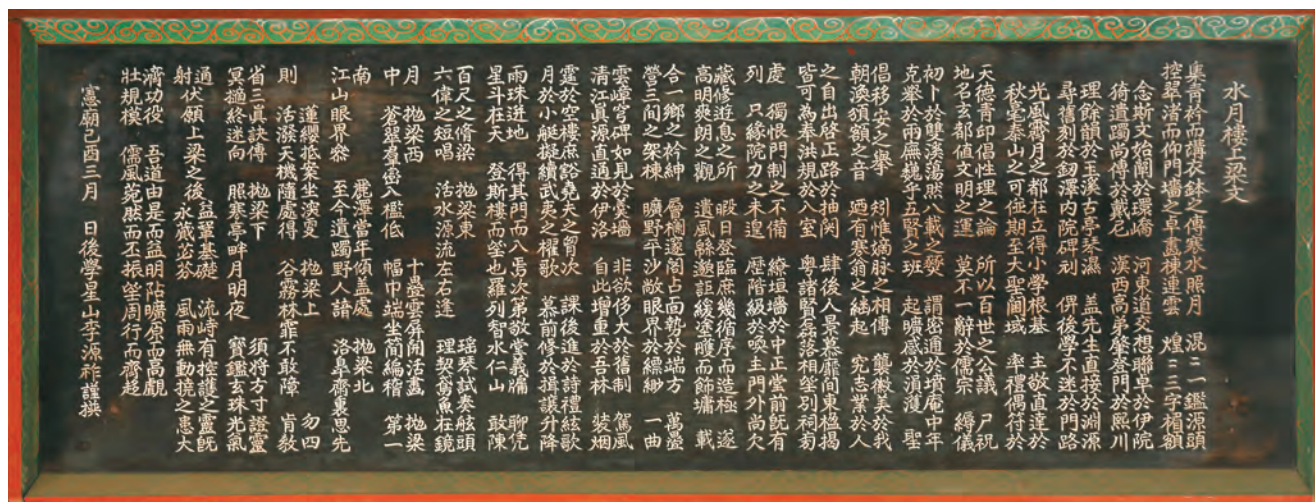 水月樓上梁文
集靑衿而講衣鉢之傳寒水照月 混二一鑑源頭
控翠渚而仰門墻之卓畵棟連雲 煌二三字楣額
念斯文始闡於環嶠 河東道交想聯卓於伊院
猗遺躅尚傳於戴尼 漢西高弟肇登門於熙川
理餘韻於玉溪古亭琴濕 盖先生直接於淵源
尋舊刻於釰澤内院碑剝 俾後學不迷於門路
光風霽月之都在立得小學根基 主敬直達於
秋毫泰山之可侔期至大聖閫域 率禮偶符於
天德青印倡性理之論 所以百世之公議 尸祝
地名玄都値文明之運 莫不一辭於儒宗 縟儀
初卜於雙溪蕩然入載之燹 謂密通於墳庵中年
克擧於兩廡巍乎五賢之班 起曠感於湏濩 聖
倡移安之擧 矧惟嫡脉之相傳 襲徽美於我
朝渙頒額之音 廼有寒翁之紬起 究志業於人
之自出啓正路於抽関 肆後人景慕靡間東楹揭
皆可爲奉洪規於入室 粤諸賢磊落相望別祠剏
處 獨恨門制之不備 繚垣墻於中正堂前旣有
列 只緣院力之未遑 歷階級於喚主門外尚欠
藏修遊息之所 暇日登臨庶幾循序而造極 遂
高明爽朗之觀 遺風緜邈詎緩塗雘而餙墉 載
合一鄕之衿紳 層欄邃閣占面勢於端方 萬疊
營三間之架棟 曠野平沙敞眼界於縹緲 一曲
雲嶂穹碑如見於羹墻 非欲侈大於舊制 駕風
清江眞源直通於伊洛 自此增重於吾林 裝烟
霆於空樓庶豁堯夫之胷次 課後進於詩禮絃歌
月於小艇擬續武夷之櫂歌 慕前修於揖讓升降
雨珠迸地 得其門而入禹次第敬堂義牖 聊凭
星斗在天 登斯樓而望也羅列智水仁山 敢陳
百尺之脩梁 抛梁東 瑶琴試奏舷頭
六偉之短唱 活水源流左右逢 理契鳶魚在鏡
月 抛梁西 十疊雲屏開活畵 抛梁
中 蒼翠羣巒入檻低 幅巾端坐簡編稽 第一
南 麗澤當年傾盖處 抛梁北
江山眼界叅 至今遺躅野人諳 洛皐齊裏思先
蓮纓抵案坐演雯 抛梁上 勿四
則 活潑天機隨處得 谷霧林霏不敢障 肯敎
省三眞訣傳 抛梁下 須將方寸證靈
冥適終迷向 照寒亭畔月明夜 寳鑑玄珠光氣
通 益鞏基礎 流峙有控護之靈旣
射伏願上梁之後 永蕆苾芬 風雨無動撓之患大
濟功役 吾道由是而益明阽曠原而高覩
壯規模 儒風菀然而丕振望周行而齊超
憲廟己酉三月 日後學星山李源祚謹撰